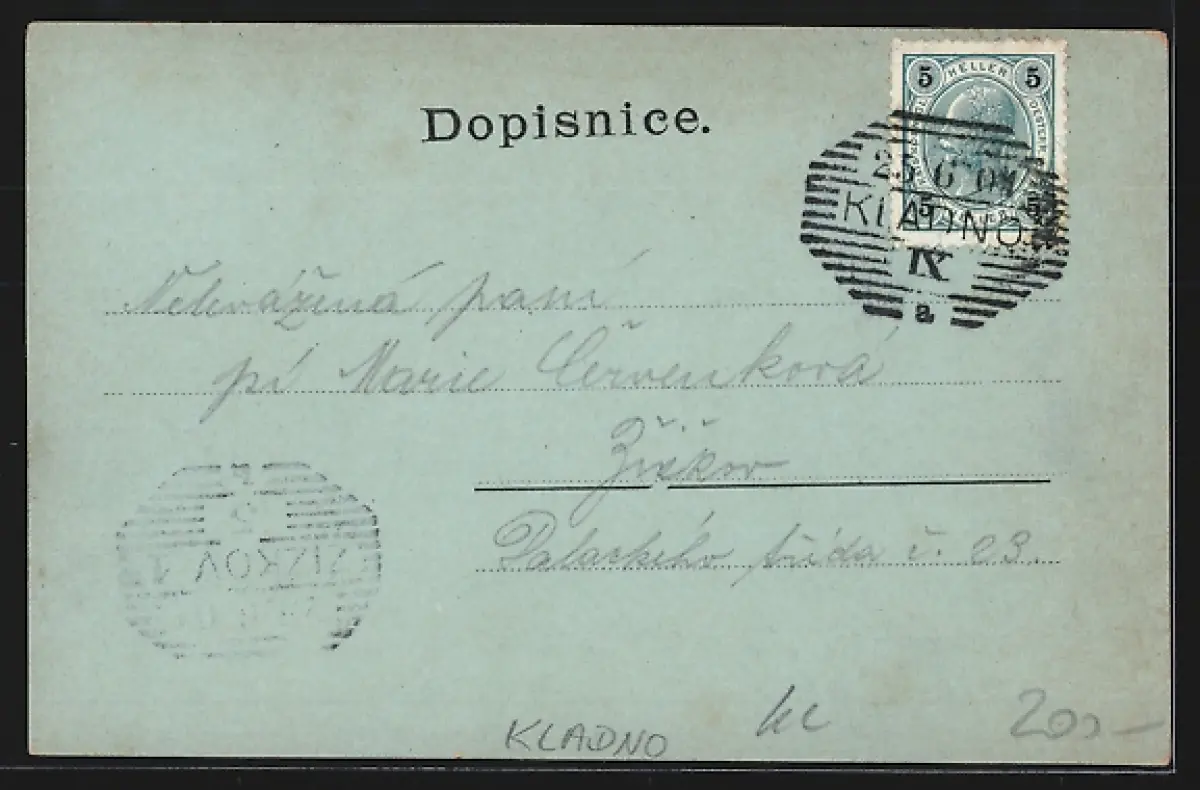 Dopisnice.
5 HELLER 5
5 5
KLADNO
IX
a
pani
pí Marie Červenková
Žižkov
Palackého třída č. 23.
ŽIŽKOV 1
KLADNO
kc
200-